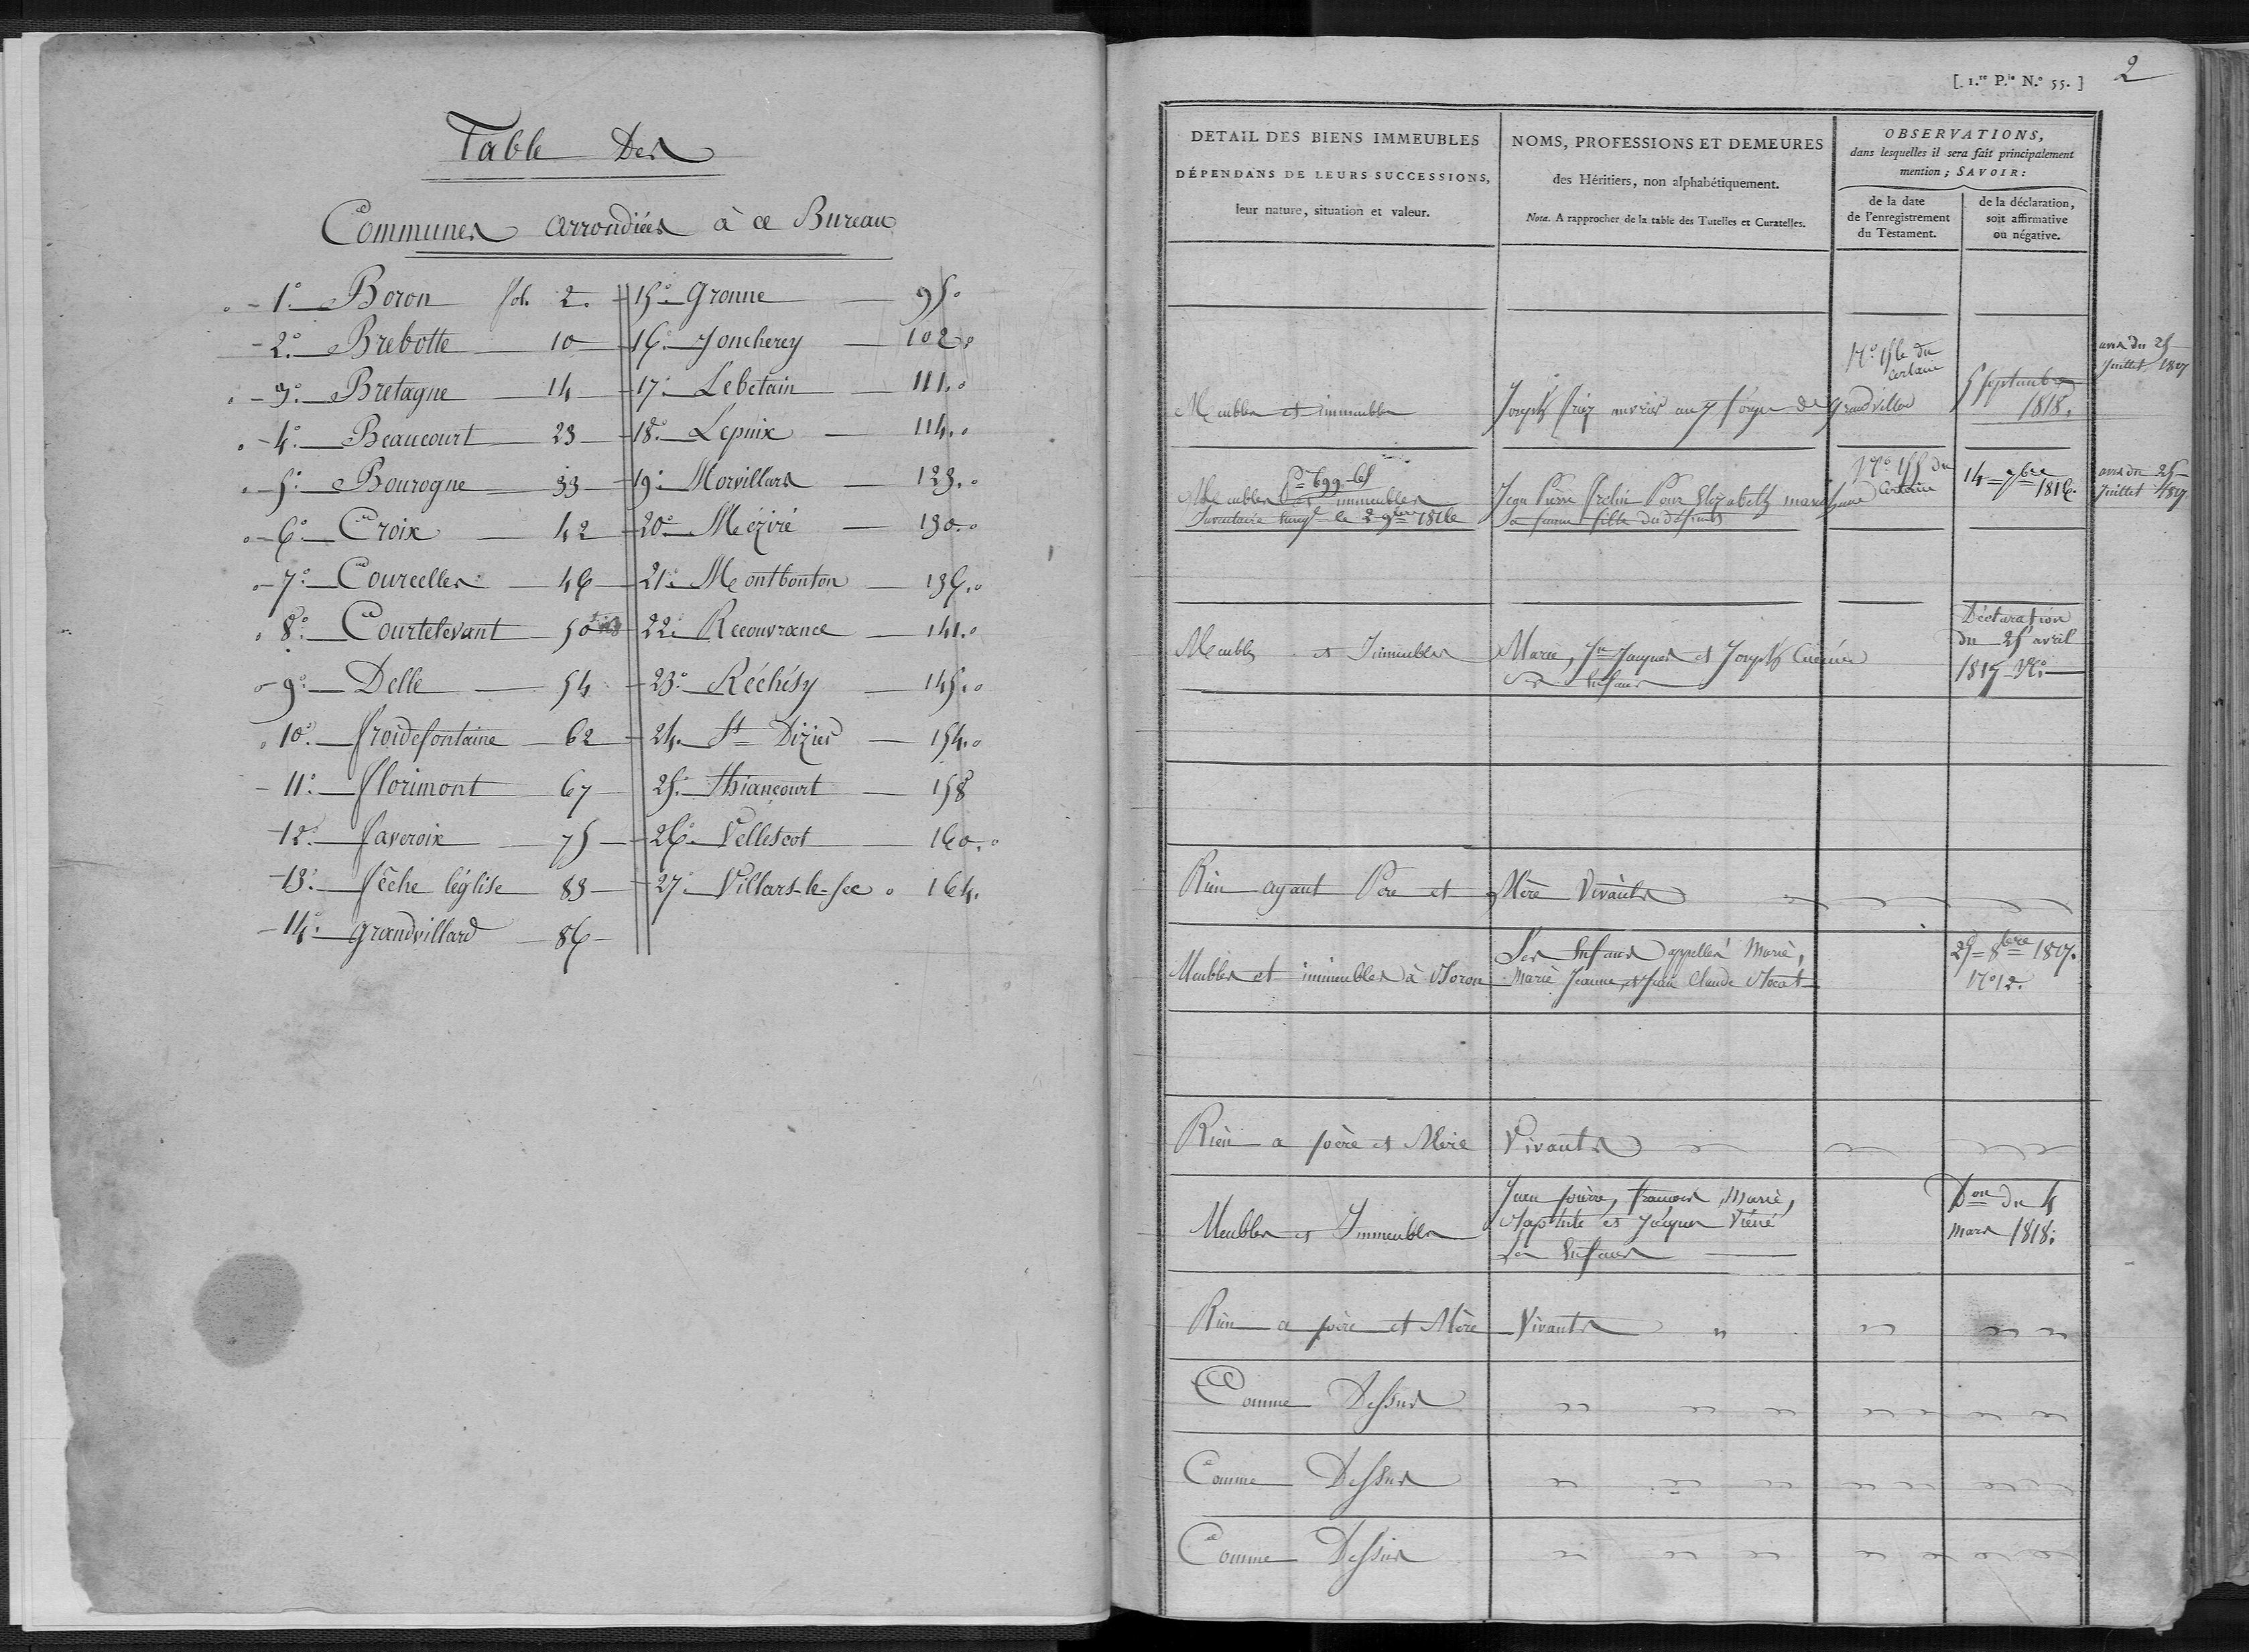 Table Des
Communes arrondiées à ce Bureau
1° Boron fol. 2.
2° Brebotte 10
3° Bretagne 14
4° Beaucourt 23
5° Bourogne 33
6° Croix 42
7° Courcelles 46
8° Courtelevant 50
9° Delle 54
10° froidefontaine 62
11° florimont 67
12° faveroix 75
13° fêche léglise 83
14° grandvillard 86
15° Gronne 95.
16° Joncherey 102.
17° Lebetain 111.
18° Lepuix 114.
19° Morvillars 123.
20° Méziré 130.
21° Montbonton 136.
22° Recouvrance 141.
23° Réchésy 145.
24. St Dizier 154.
25° thiancourt 158
26° Vellescot 160.
27° Villars-le-sec 164.
[ 1.re P.ie N.° 55. ] 2
DETAIL DES BIENS IMMEUBLES
DÉPENDANS DE LEURS SUCCESSIONS,
leur nature, situation et valeur.
NOMS, PROFESSIONS ET DEMEURES
des Héritiers, non alphabétiquement.
Nota. A rapprocher de la table des Tutelles et Curatelles.
OBSERVATIONS,
dans lesquelles il sera fait principalement
mention; SAVOIR:
de la date
de l'enregistrement
du Testament.
de la déclaration,
soit affirmative
ou négative.
Meubles et immeubles
Joseph ouvrier aux forges de Grandvillard
N° 156 du
5 Septembre
1818.
avis du 25
Juillet 1817
Meubles et immeubles
Inventaire le 2 9bre 1816
Jean Pierre Pour Elizabeth
sa femme fille du défunt
N° 155 du
14 = 7bre
1816.
avis du 25
Juillet 1817.
Meubles et Immeubles
Marie, Jn Jacques et Joseph
Ses Enfans
Déclaration
du 25 avril
1817 N°
Rien ayant Pere et Mère Vivants
Meubles et immeubles à Boron
Ses Enfans appellés Marie,
Marie Jeanne, et Jean Claude
25 = 8bre 1817.
N° 12.
Rien a père et Mère Vivants
Meubles et Immeubles
Jean pierre, françois, Marie,
Baptiste et Jacques
Les Enfans
Don du 4
mars 1818.
Rien a père et Mère Vivants
Comme Dessus
Comme Dessus
Comme Dessus